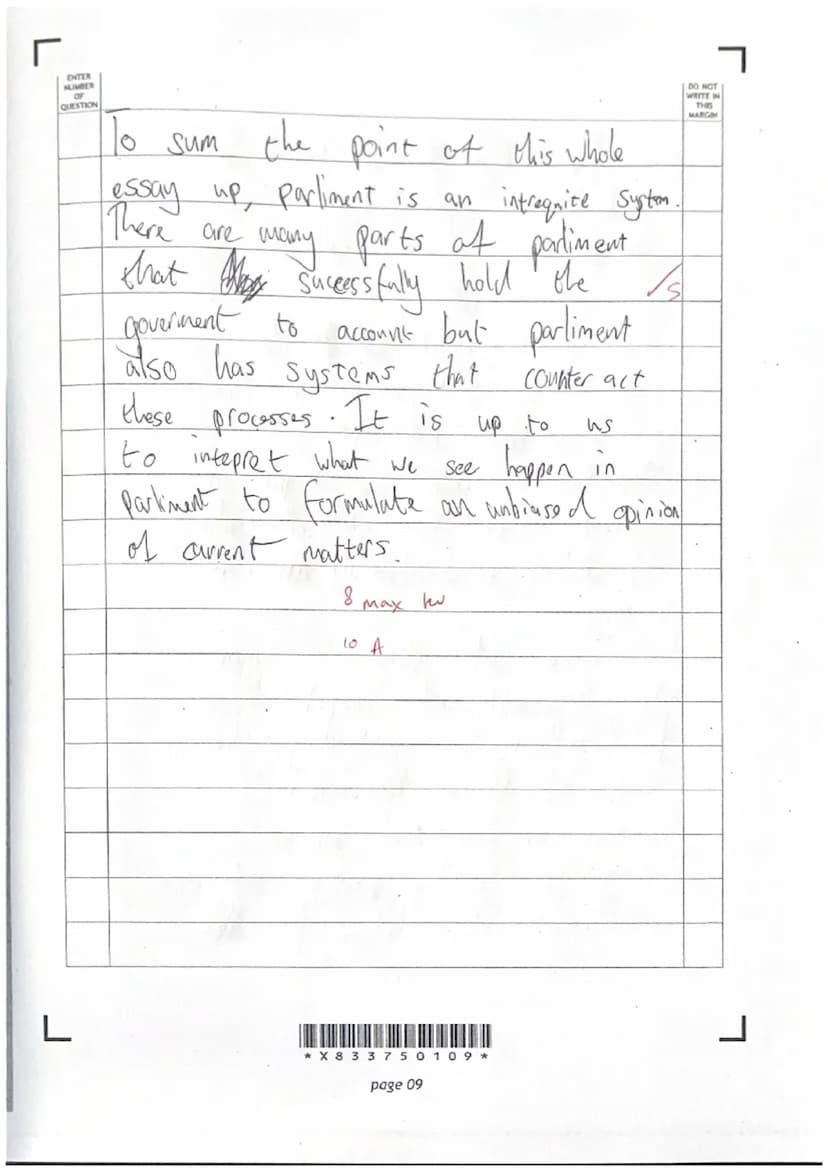 ENTER
NUMBER
OF
QUESTION
DO NOT
WRITE IN
THIS
MARGIN
To sum the point of this whole
essay up, parliment is an intreqnite system.
There are many parts of parliment
that sucessfully hold the
/s
goverment to account but parliment
also has systems that counter act
these processes. It is up to us
to intepret what we see happen in
parliment to formulate an unbiased opinion
of current matters.
8 max
10 A
*X833750109*
page 09